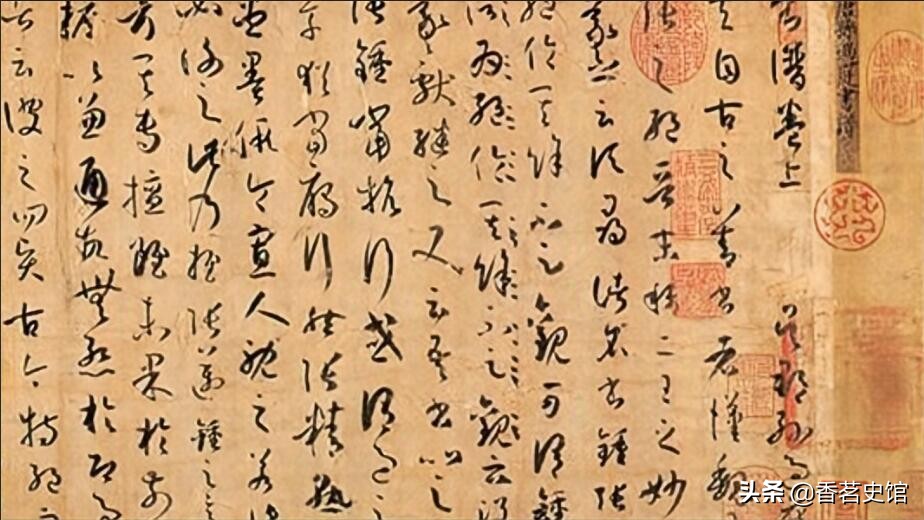 書譜卷上 吳郡孫過
夫自古之善書者漢魏
張之絕晉末稱二王之妙
羲之云頃尋諸名書鍾張
絕倫其餘不足觀可謂鍾
信為絕倫其餘不足觀云沒
羲獻繼之又云吾書比之
張鍾當抗行或謂過之
草猶當雁行然張精熟
盡墨假令寡人耽之若
必謝之此乃推張邁鍾之意
考其專擅雖未果於前
摭以兼通故無慚於即事
者云彼之四賢古今特絕
头条 @香茗史馆